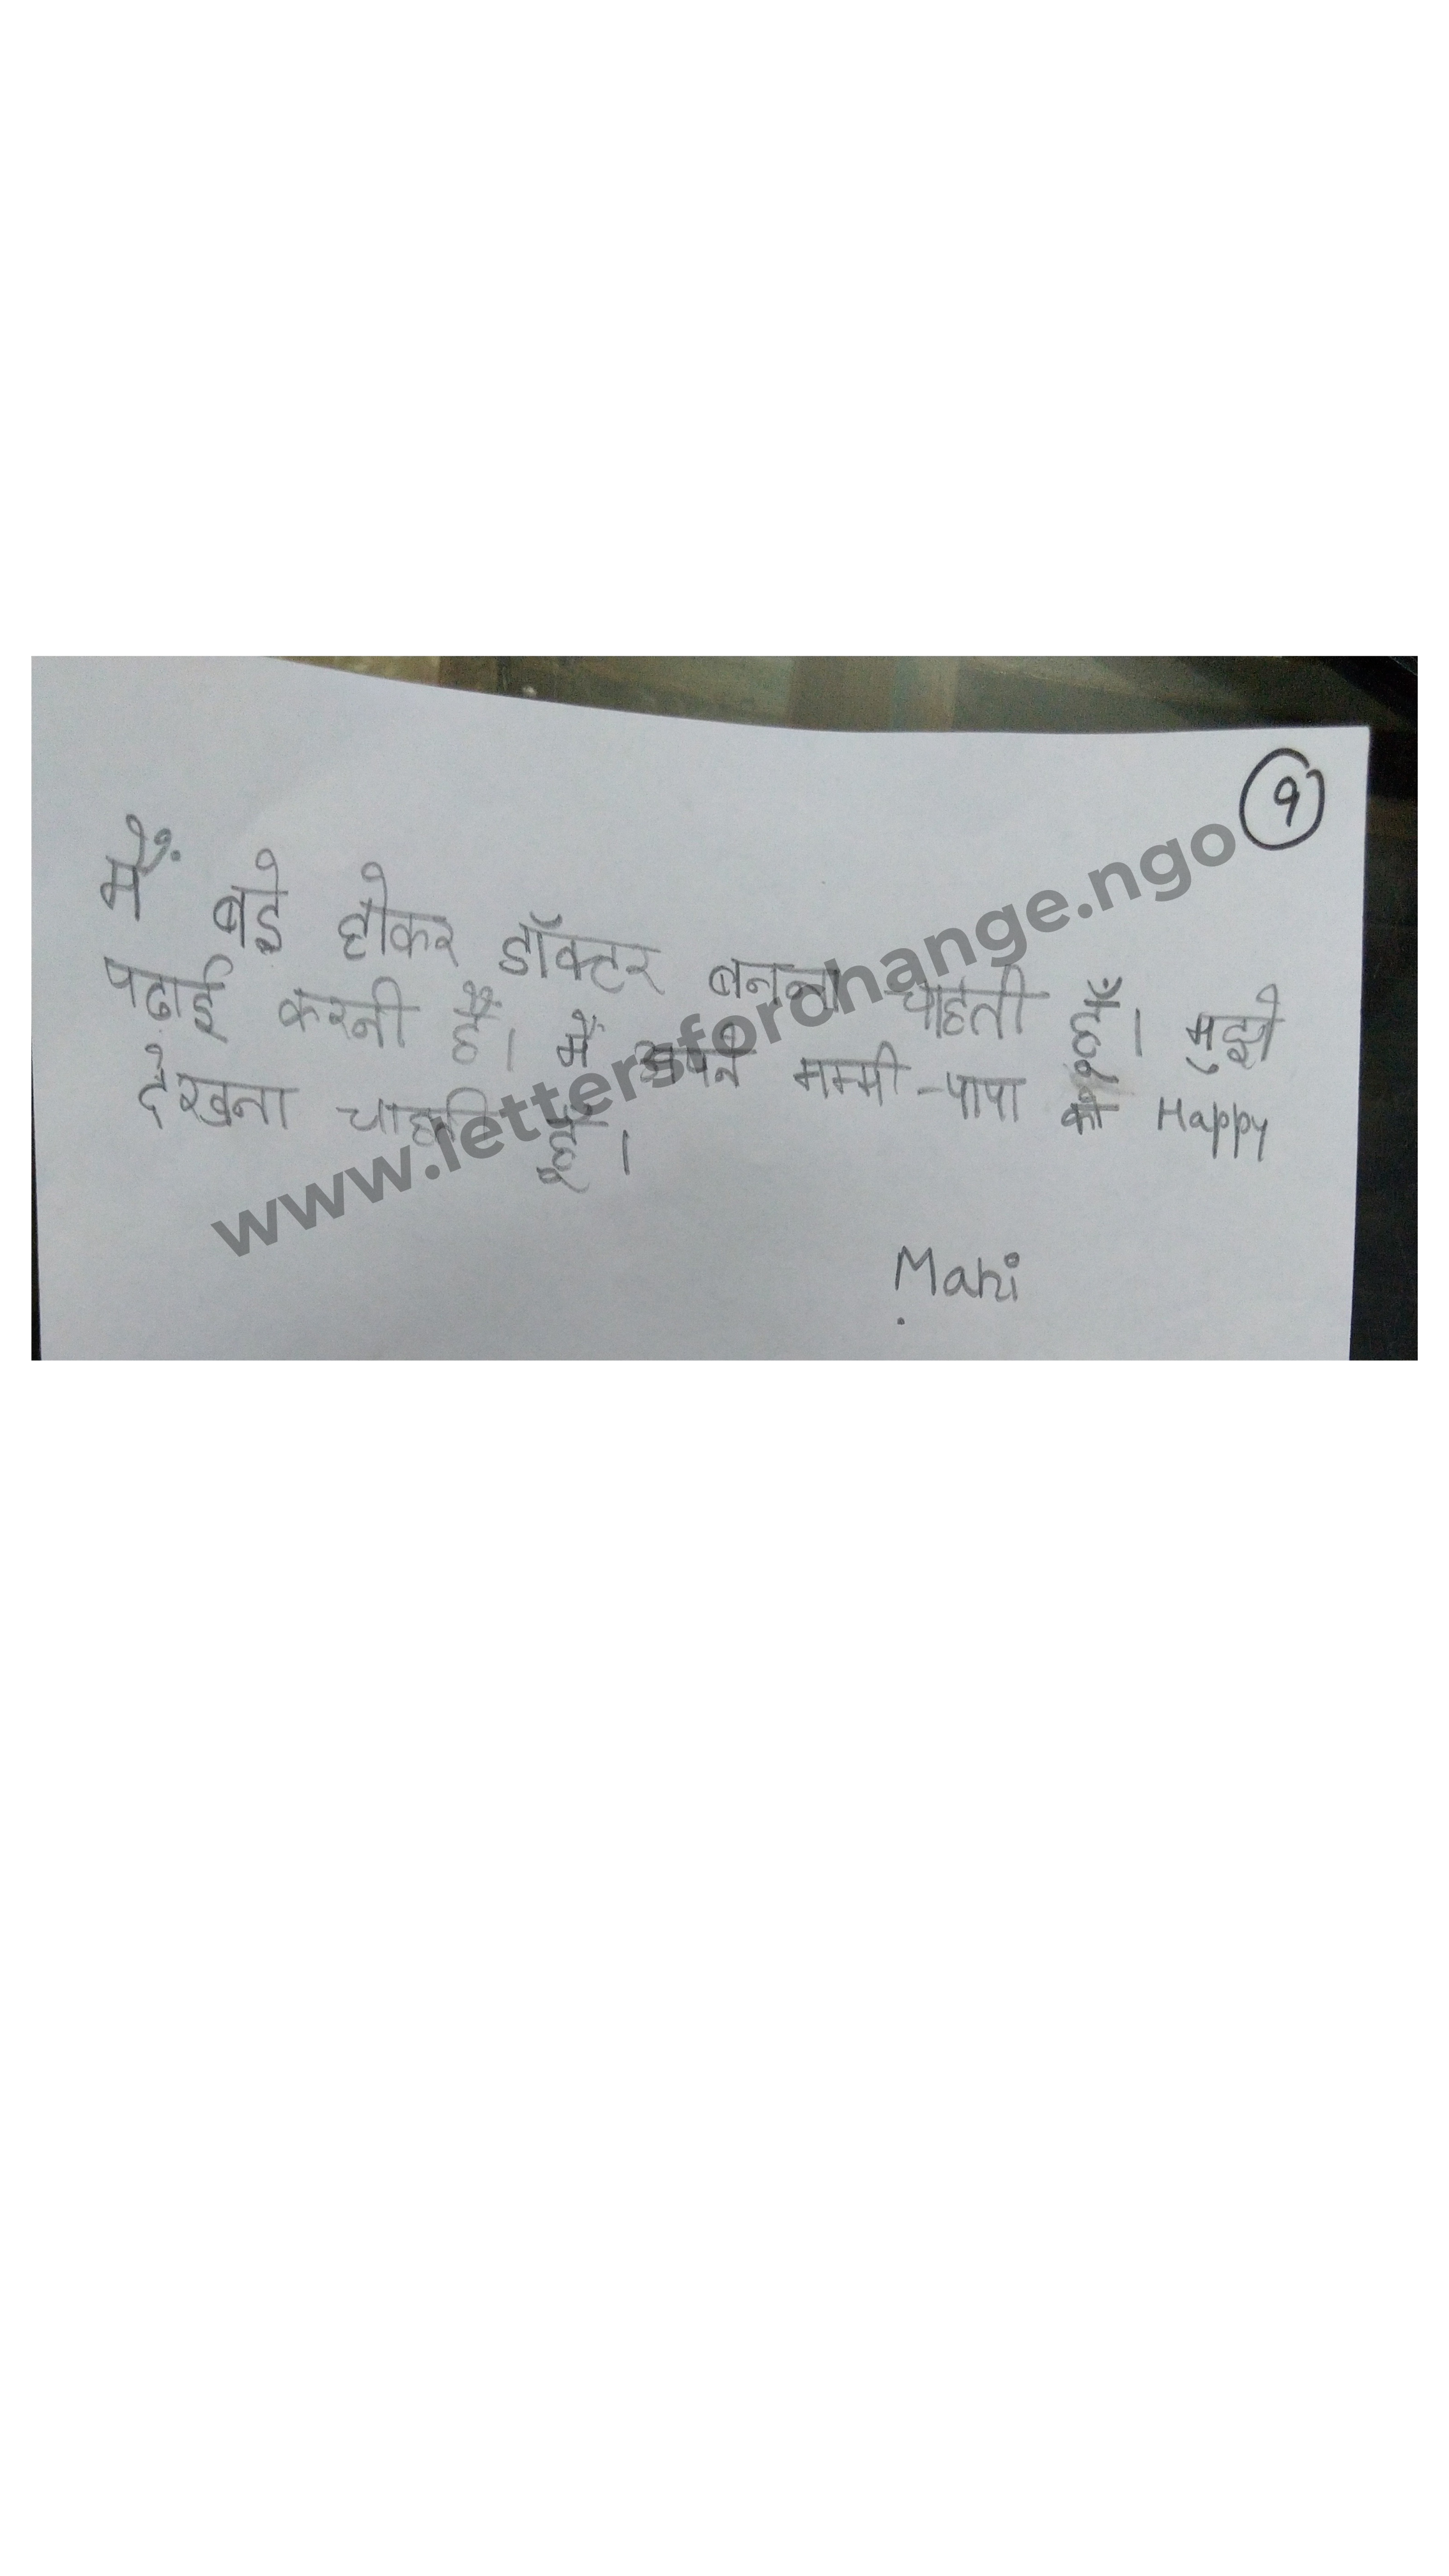 9
मैं बड़े होकर डॉक्टर बनना चाहती हूँ। मुझे
पढ़ाई करनी हैं। मैं अपने मम्मी-पापा को Happy
देखना चाहती हूँ।
Mahi
www.lettersforchange.ngo